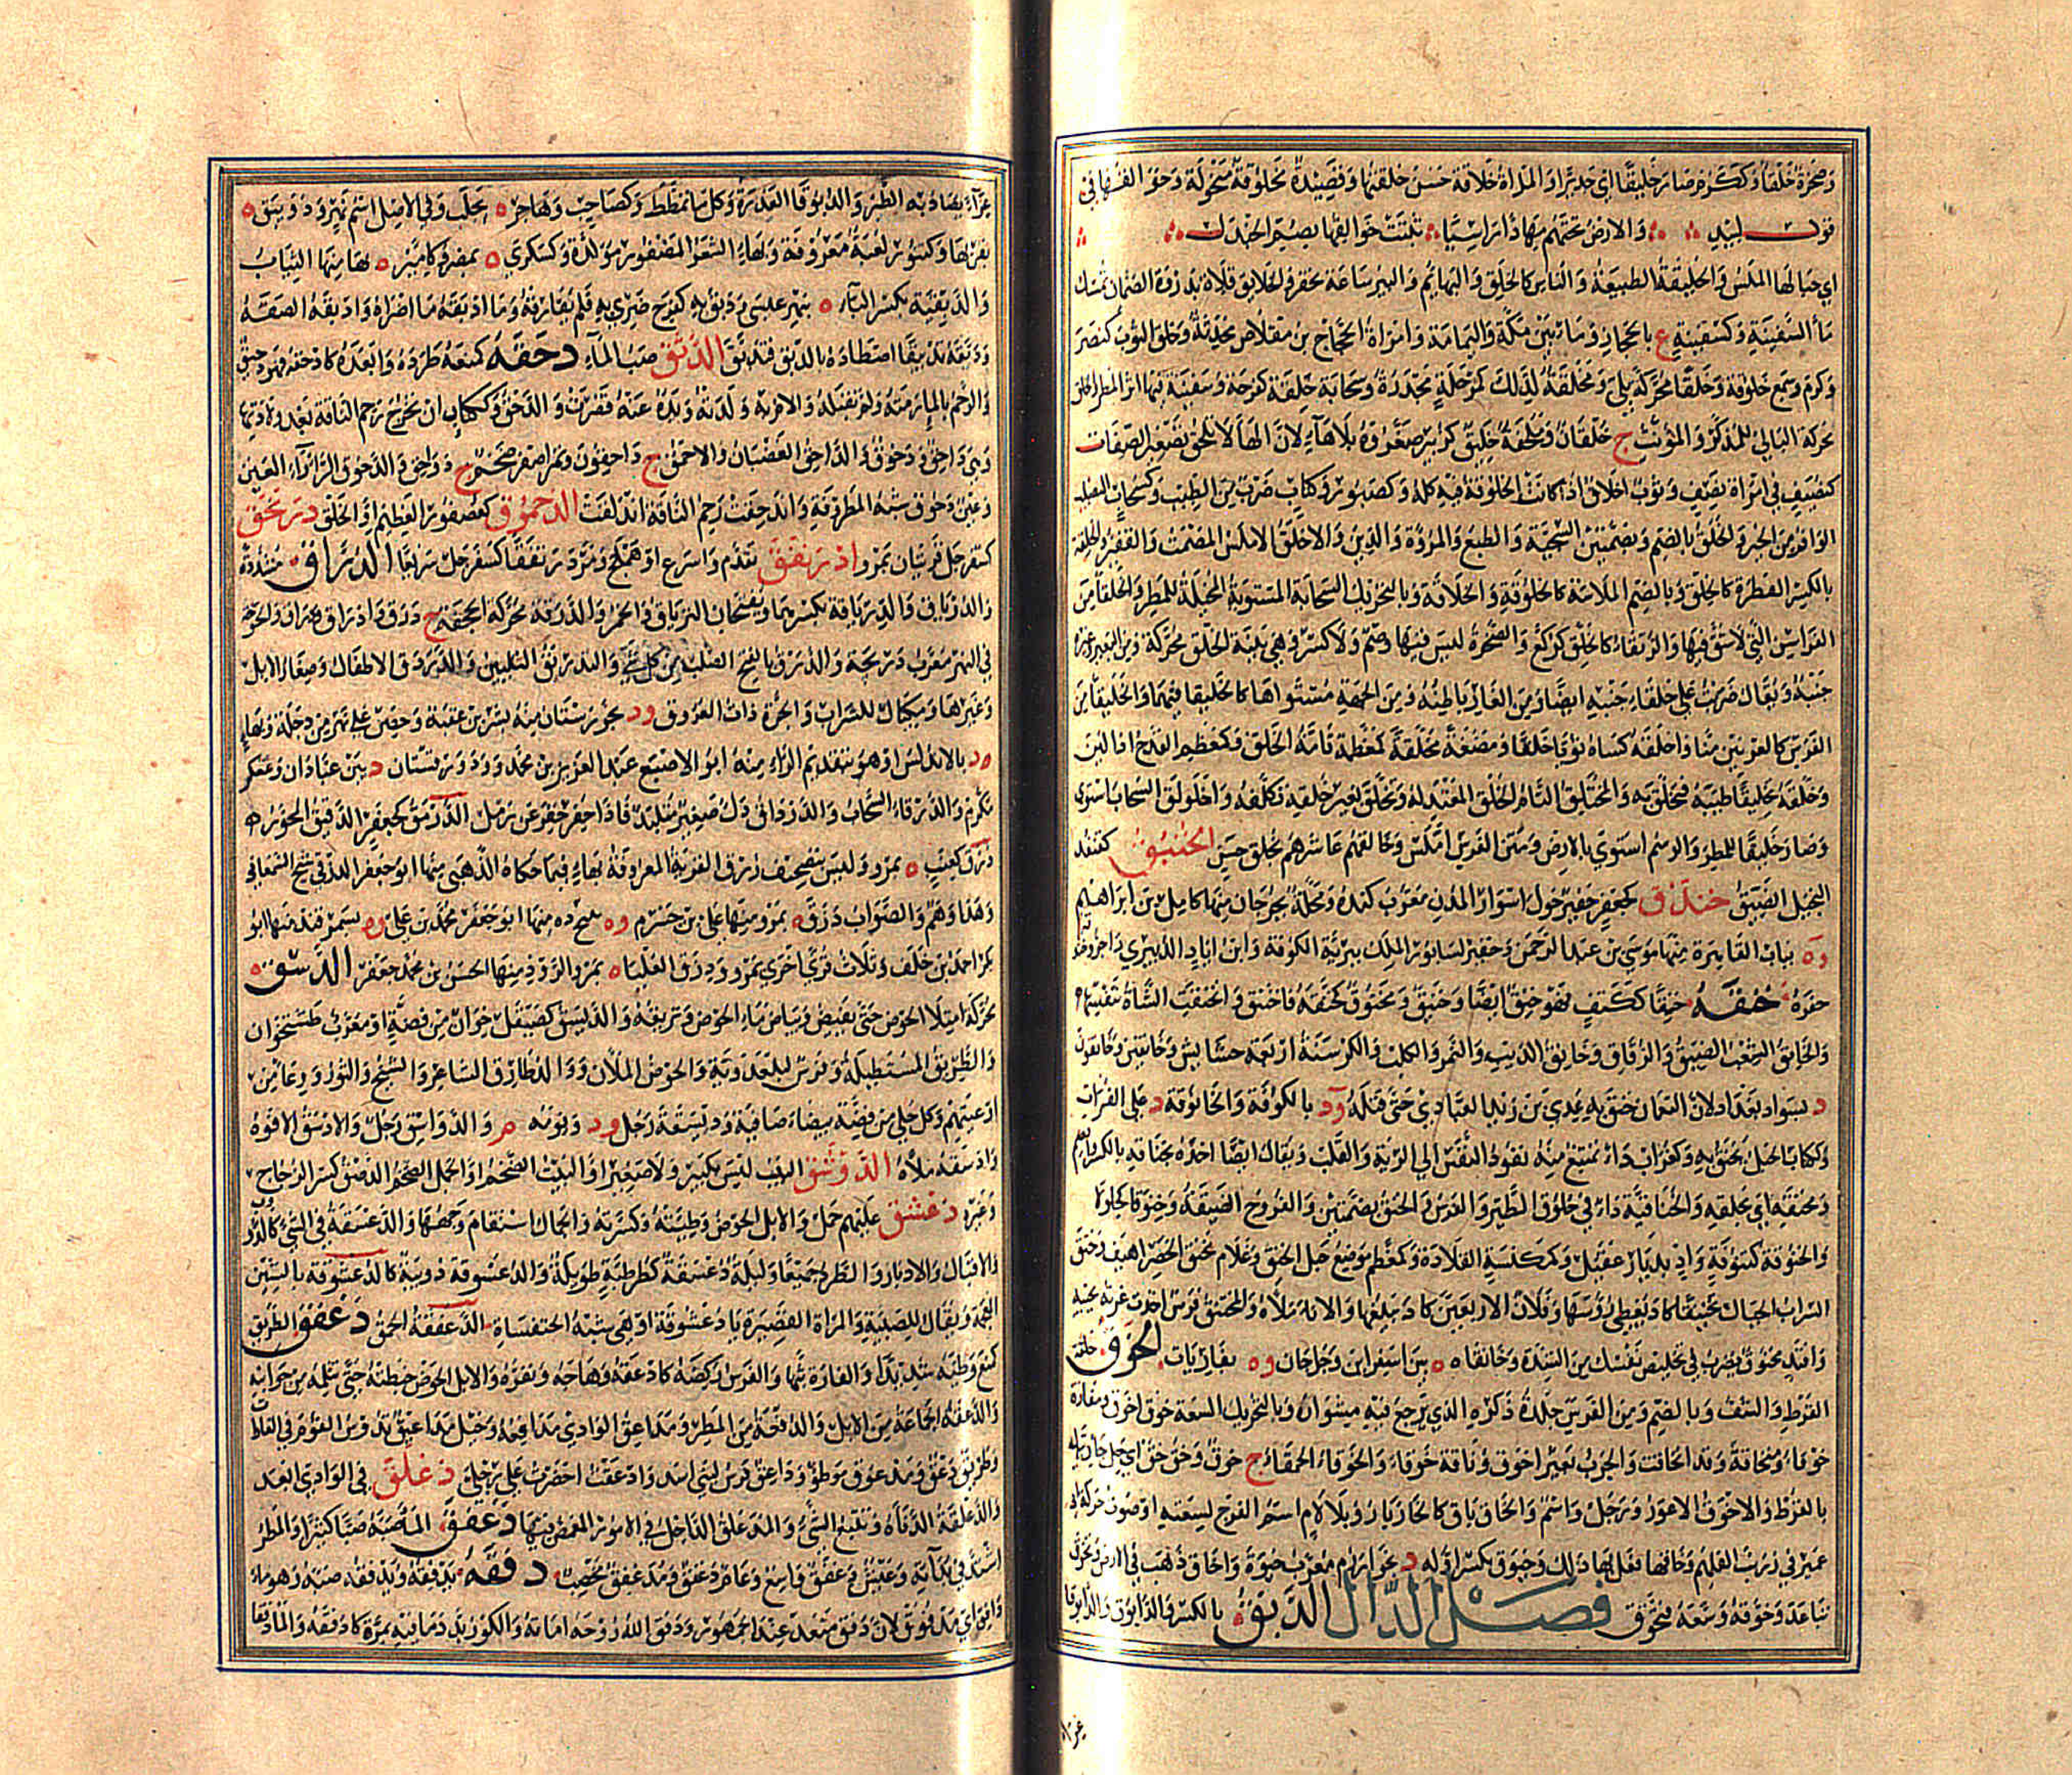 وصخرة خلقاء وككرم صار خليقا اي جديرا والمراة خلاقة حسن خلقها وقصيدة مخلوقة منحولة وخوالقها في
قول لبيد والارض تحتهم مهادا راسيا ثبتت خوالقها بصم الجندل
اي جبالها الملس والخليقة الطبيعة والناس كالخلق والبهائم والبير ساعة تحفر والخلايق قلات بذروة الصمان تمسك
ماء السماء وكسفينة ع بالحجاز وماء بين مكة واليمامة وامراة الحجاج بن مقلاص محدثة وخلق الثوب كنصر
وكرم وسمع خلوقة وخلقا محركة بلي ومخلقة لذلك كمرحلة مجدرة وسحابة خلقة كفرحة وسفينة فيها اثر المطر والخلق
محركة البالي للمذكر والمؤنث ج خلقان وملحفة خليق كزبير صغروه بلا هاء لان الهاء لا تلحق تصغير الصفات
كنصيف في امراة نصف وثوب اخلاق اذا كانت الخلوقة فيه كله وكصبور وكتاب ضرب من الطيب وكسحاب النصيب
الوافر من الخير والخلق بالضم وبضمتين السجية والطبع والمروة والدين والاخلق الاملس المصمت والفقير والخلقة
بالكسر الفطرة كالخلق وبالضم الملاسة كالخلوقة والخلاقة وبالتحريك السحابة المستوية المخيلة للمطر والخلقاء من
الفراسن التي لا شق فيها والرتقاء كالخلق كركع والصخرة ليس فيها وصم ولا كسر وهي بينة الخلق محركة ومن البعير وغيره
جنبه ويقال ضربت على خلقاء جنبه ايضا ومن الغار باطنه ومن الجبهة مستواها كالخليقا فيهما والخليقاء من
الفرس كالعرنين منا واخلقه كساه ثوبا خلقا ومضغة مخلقة كمعظمة تامة الخلق وكمعظم القدح اذا لين
وخلقه تخليقا طيبه فتخلق به والمختلق التام الخلق المعتدله وتخلق بغير خلقه تكلفه واخلولق السحاب استوى
وصار خليقا للمطر والرسم استوى بالارض ومتن الفرس املس وخالقهم عاشرهم بخلق حسن الخنبق كقنفذ
البخيل الضيق خندق كجعفر حفير حول اسوار المدن معرب كنده ومحلة بجرجان منها كامل بن ابراهيم
وة بباب القاهرة منها موسى بن عبد الرحمن وحفير لسابور الملك ببرية الكوفة وابن اياد الدبيري راجز وخندق
حفره خنقه خنقا ككتف فهو خنق ايضا وخنيق ومخنوق كخنقه فاختنق وانخنقت الشاة بنفسها
والخانق الشعب الضيق والزقاق وخانق الذيب والنمر والكلب والكرسنة اربعة حشايش وخانقين وخانقون
د بسواد بغداد لان النعمان خنق به عدي بن زيد العبادي حتى قتله ود بالكوفة والخانوقة د على الفرات
وككتاب الحبل يخنق به وكغراب داء يمتنع منه نفوذ النفس الى الرية والقلب ويقال ايضا اخذه بخناقه بالكسر والضم
ومخنقه اي بحلقه والخناقية داء في حلوق الطير والفرس والخنق بضمتين والفروج الضيقة وخنوقا كجلولا
والخنوقة كتنوفة واد بديار عقيل وكمكنسة القلادة وكمعظم موضع حبل الخنق وغلام مخنق الخصر اهيف وخنق
السراب الجبال تخنيقا كاد يغطي رؤسها وفلان الاربعين كاد يبلغها والاناء ملاه والمختنق فرس اخذت غرته لحييه
وافتد مخنوق يضرب في تخليص نفسك من الشدة وخانقاه ة بين اسفراين وجرجان وة بفارياب الخوق حلقة
القرط والشنف وبالضم ومن الفرس جلدة ذكره الذي يرجع فيه مشوار وبالتحريك السعة خوق اخوق ومفازة
خوقاء ومنخاقة وقد انخاقت والجرب بعير اخوق وناقة خوقاء والخوقاء الحمقاء ج خوق وخق خق اي حل جاريتك
بالقرط والاخوق الاعور ورجل واسم والخاق باق كالخازباز وبلا لام اسم الفرج لسعته او صوت حركة
عمير في زرنب الفلهم وخاقها فعل بها ذلك وخيوق بكسر اوله د بخوارزم معرب خيوه واخاق ذهب في الارض وتخوق
تباعد وخوقه وسعه فتخوق فصل الدال الدبق بالكسر والدابوق والدبوقاء
غراء
غراء يصاد به الطير والدبوقا العذرة وكل ما تمطط وكصاحب وهاجر ة بحلب وفي الاصل اسم نهر ودوبق ة
بقربها وكتنور لعبة معروفة وبهاء الشعر المضفور مولدة وكسكرى ة بمصر وكامير ة بها منها الثياب
والدبيقية بكسر الباء ة بنهر عيسى ودبق به كفرح ضري به فلم يفارقه وما ادبقه ما اضراه وادبقه الصقه
ودبقه تدبيقا اصطاده بالدبق فتدبق الدثق صب الماء دحقه كمنعه طرده وابعده كادحقه فهو دحيق
والرحم بالماء رمته ولم تقبله والام به ولدته ويده عنه قصرت والدحق وككتاب ان تخرج رحم الناقة بعد ولادتها
وهي داحق ودحوق والداحق الغضبان والاحمق ج داحقون وتمر اصفر ضخم ج دواحق والدحوق الرارآء العين
وعين دحوق شبه المطروفة واندحقت رحم الناقة اندلقت الدحموق كعصفور العظيم او الخلق درنحق
كسفرجل قريتان بمرو ادرنفق تقدم واسرع او هملج ومر درنفقا كسفرجل سريعا الدراق مشددة
والدرياق والدرياقة بكسرهما ويفتحان الترياق والخمر والدرقة محركة الحجفة ج درق وادراق ودراق والخوخة
في النهر معرب دريجه والدرق بالفتح الصلب من كل شي والتدريق التليين والدردق الاطفال وصغار الابل
وغيرها ومكيال للشراب والجرة ذات العروة ود بخوزستان منه بشر بن عقبة وحصن على نهر من دجلة وبهاء
ة بالاندلس او هو بتقديم الراء منه ابو الاصبغ عبد العزيز بن محمد ودورقستان د بين عبادان وعسكر
مكرم والدرقاء السحاب والدرداق دك صغير متلبد فاذا حفر حفر عن رمل الدرمق كجعفر الدقيق المحور
دزق كعنب ة بمرو وليس تصحيف زرق القرية المعروفة بهاء فيما حكاه الذهبي منها ابو جعفر الدزقي شيخ السمعاني
وهذا وهم والصواب دزق ة بمرو منها علي بن خشرم وة بپنج ده منها ابو جعفر محمد بن علي وة بسمرقند منها ابو
بكر احمد بن خلف وثلاث قرى اخرى بمرو ودزق العليا ة بمرو الروذ منها الحسن بن محمد جعفر الدسق
محركة امتلا الحوض حتى يفيض وبياض ماء الحوض وتريقه والديسق كصيقل خوان من فضة او معرب طشتخوان
والطريق المستطيلة وفرس للعدوية والحوض الملان ووالد طارق الشاعر والشيخ والنور ووعاء من
اوعيتهم وكل حلي من فضة بيضاء صافية وديسقة رجل ود ويومه م والدواسق رجل والادسق الافوه
وادسقه ملاه الدوشق البيت ليس بكبير ولا صغير او البيت الضخم او الجمل الضخم الدصق كسر الزجاج
وغيره دعشق عليهم حمل والابل الحوض وطيته وكسرته والجمال استقام وجهها والدعسقة في الشي كالدؤب
والاقبال والادبار والطرد جميعا وليلة دعسقة كطرطبة طويلة والدعسوقة دويبة كالدعشوقة بالشين
المعجمة ويقال للصبية والمراة القصيرة يا دعشوقة او هي شبه الخنفساة الدعفقة الحمق دعق الطريق
كمنع وطئه شديدا والغارة بثها والفرس ركضه كادعقه وهاجه ونفره والابل الحوض خبطته حتى ثلمته من جوانبه
والدعقة الجماعة من الابل والدفعة من المطر ومداعق الوادي مدافعه وخيل مداعيق تدوس القوم في الغارات
وطريق دعق ومدعوق موطؤ وداعق فرس لبني اسد وادعقت احضرت على رجلي دعلق في الوادي ابعد
والدعلقة الدناة وتتبع الشي والمدعلق الداخل في الامور المغمض فيها دغفق الماء صبه صبا كثيرا والمطر
اشتد في بدآته وعيش دغفق واسع وعام دغفق ومدغفق مخصب دفقه يدفقه ويدفقه صبه وهو ماء
دافق اي مدفوق لان دفق متعد عند الجمهور ودفق الله روحه اماته والكوز بدد ما فيه بمرة كادفقه والماء دفقا